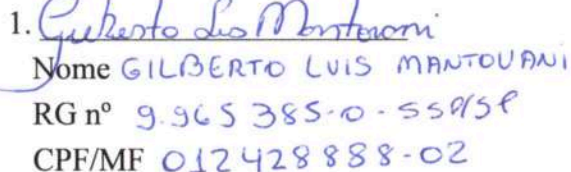 1. Gilberto Luis Mantovani
Nome GILBERTO LUIS MANTOVANI
RG nº 9.965385-0-SSP/SP
CPF/MF 012428888-02